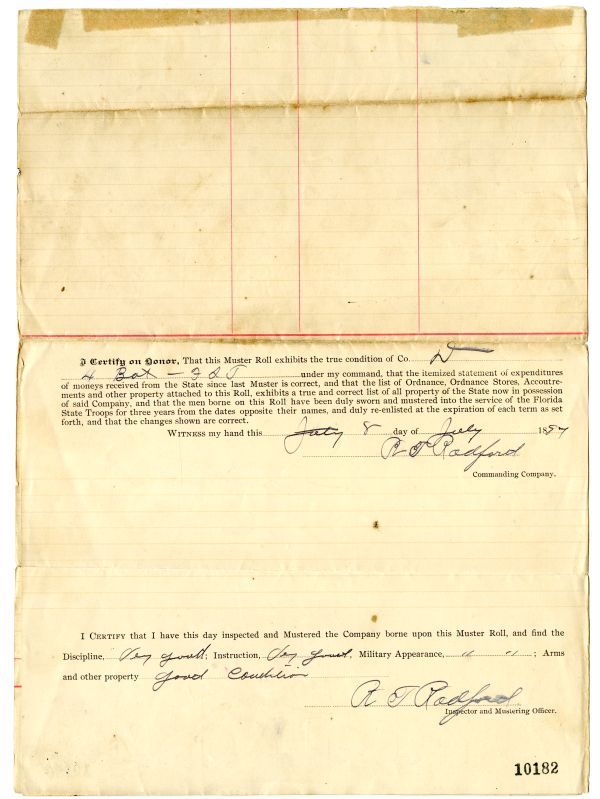 I Certify on Honor, That this Muster Roll exhibits the true condition of Co. D
4 Bat — F S T under my command, that the itemized statement of expenditures
of moneys received from the State since last Muster is correct, and that the list of Ordnance, Ordnance Stores, Accoutre-
ments and other property attached to this Roll, exhibits a true and correct list of all property of the State now in possession
of said Company, and that the men borne on this Roll have been duly sworn and mustered into the service of the Florida
State Troops for three years from the dates opposite their names, and duly re-enlisted at the expiration of each term as set
forth, and that the changes shown are correct.
WITNESS my hand this July 8 day of July 1897
R T Radford
Commanding Company.
I CERTIFY that I have this day inspected and Mustered the Company borne upon this Muster Roll, and find the
Discipline, Very good; Instruction, Very good, Military Appearance, " " ; Arms
and other property good Condition
R T Radford
Inspector and Mustering Officer.
10182